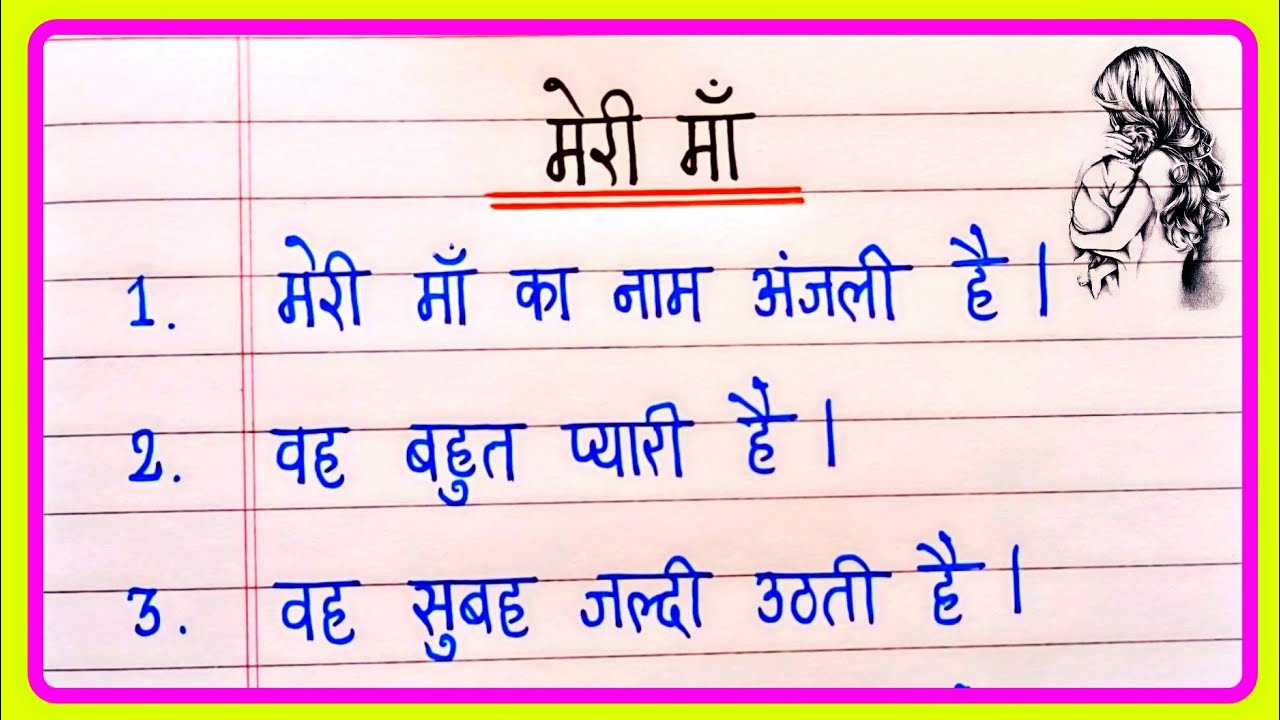 मेरी माँ
1. मेरी माँ का नाम अंजली है।
2. वह बहुत प्यारी है।
3. वह सुबह जल्दी उठती है।